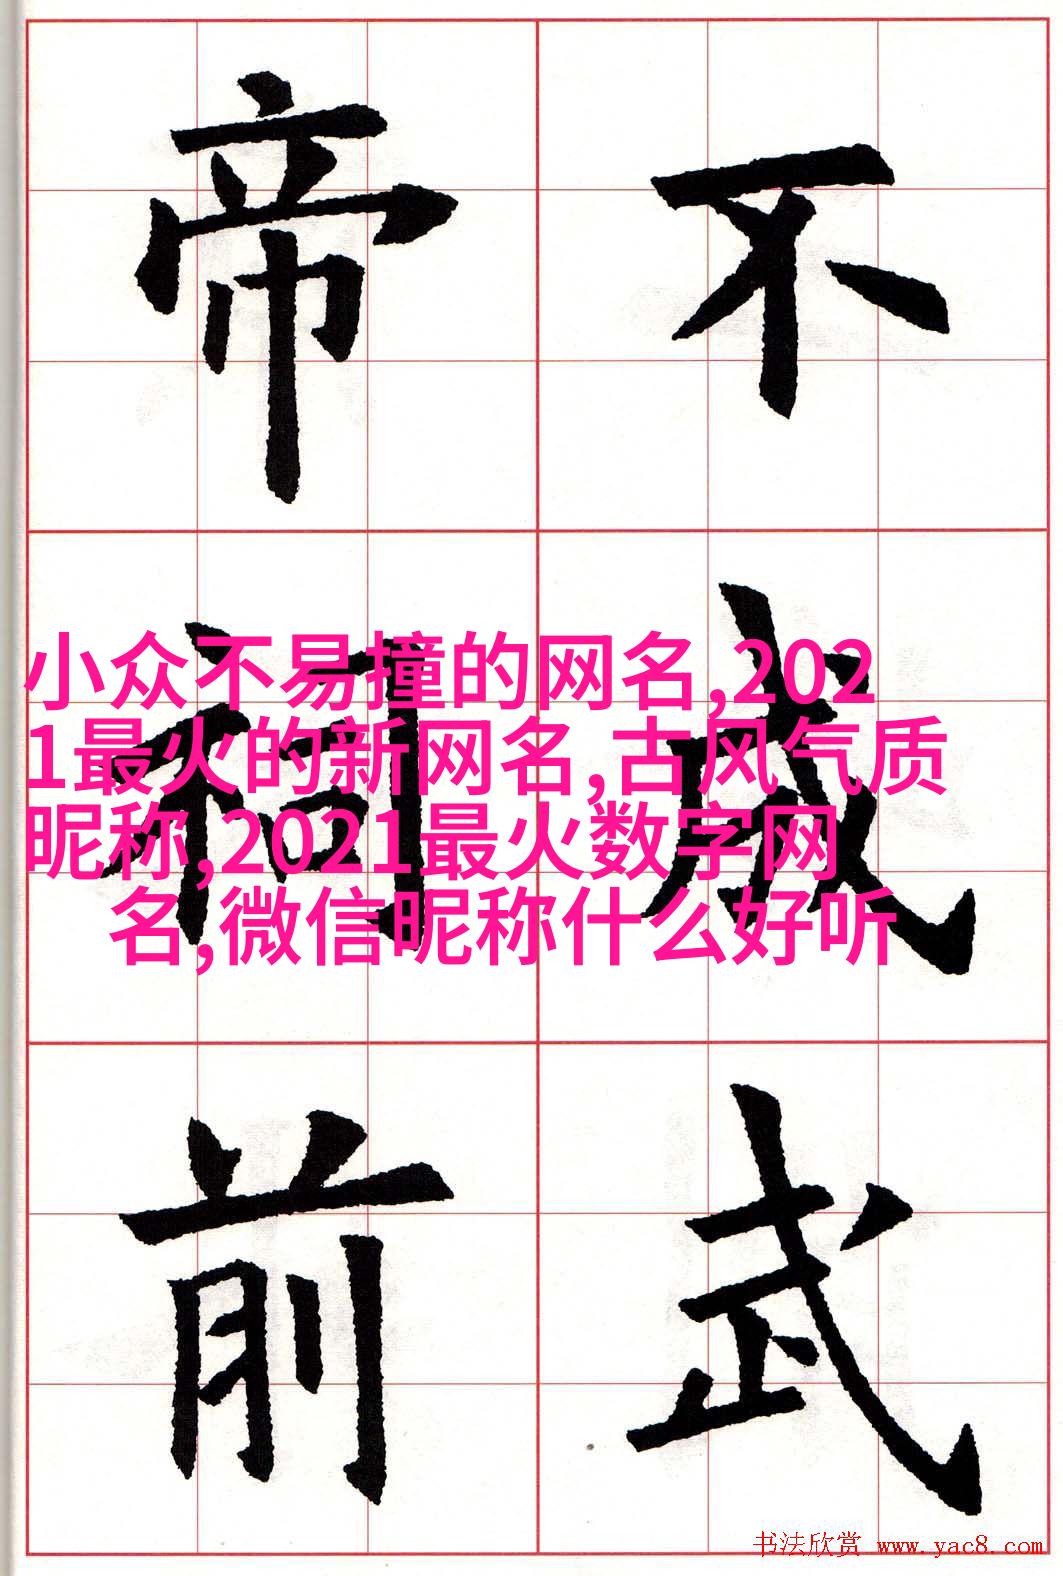 不武
帝祠前
小众不易撞的网名,202
1最火的新网名,古风气质
昵称,2021最火数字网
名,微信昵称什么好听
书法欣赏 www.yac8.com